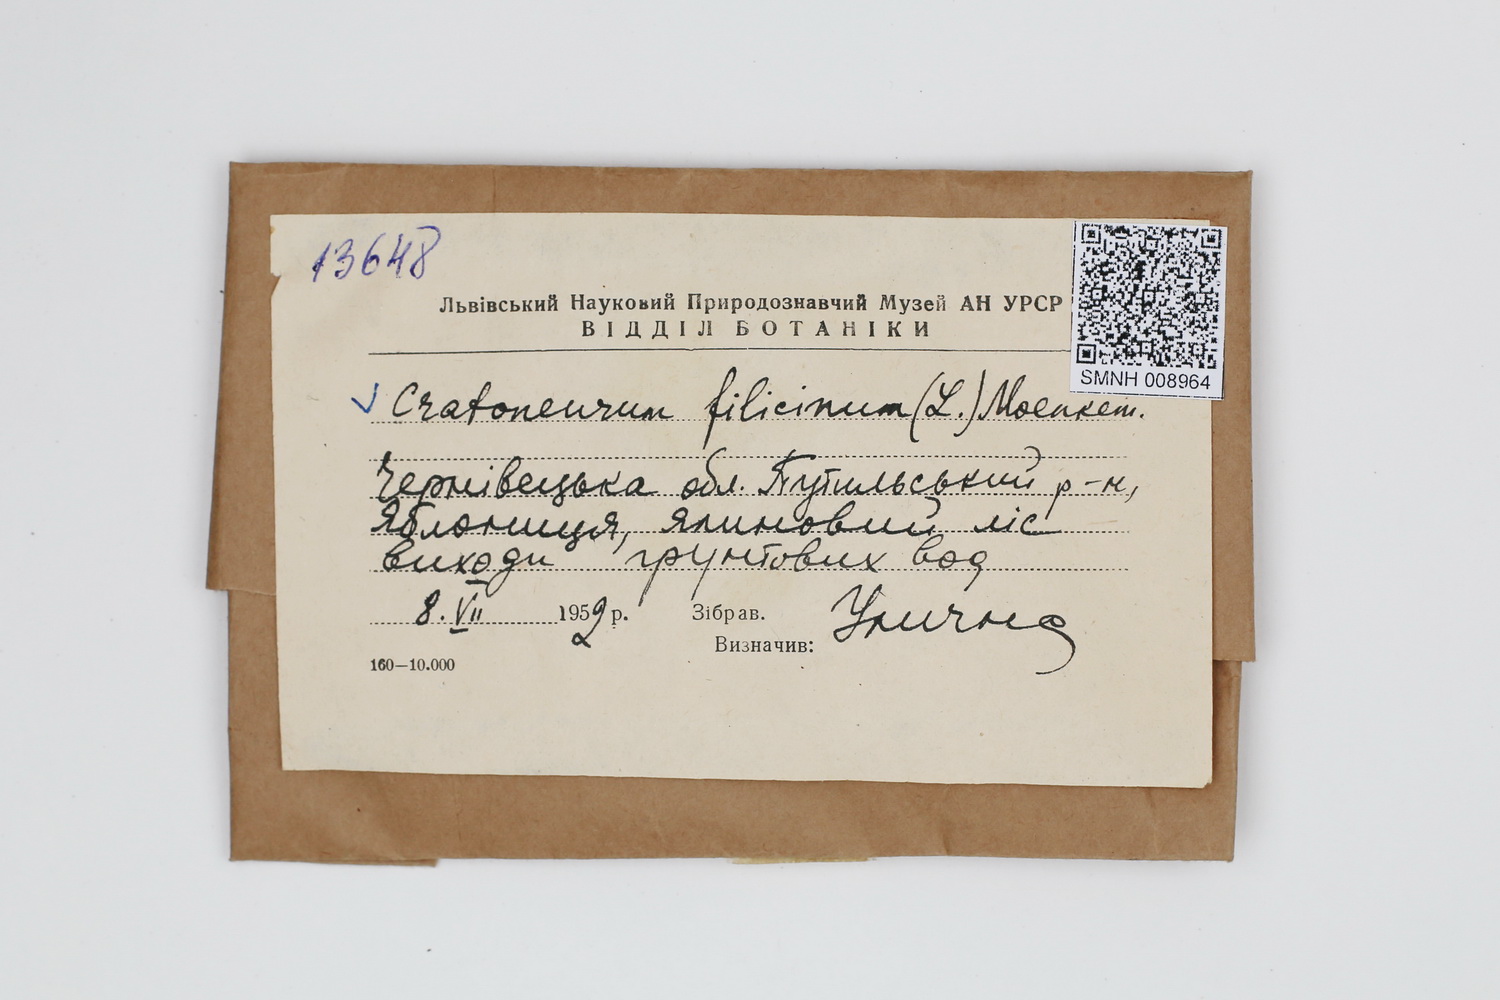 13648
Львівський Науковий Природознавчий Музей АН УРСР
ВІДДІЛ БОТАНІКИ
SMNH 008964
Cratoneurum filicinum (L.) Moenkem.
Чернівецька обл. Путильський р-н,
Яблониця, ялиновий ліс
виходи грунтових вод
8. VII 1952 р. Зібрав. Уличне
Визначив:
160—10.000